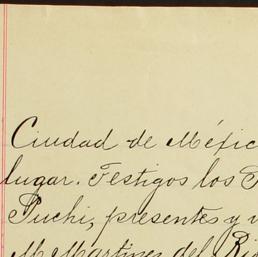 Ciudad de Méxic
lugar. Testigos los
Puchi, presentes y v
M Martinez del Rio